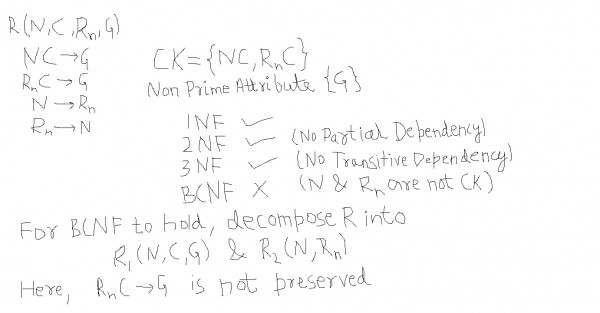 R(N,C,Rn,G)
NC→G
RnC→G
N→Rn
Rn→N
CK={NC,RnC}
Non Prime Attribute {G}
1NF ✓
2NF ✓ (No Partial Dependency)
3NF ✓ (No Transitive Dependency)
BCNF X (N & Rn are not CK)
For BCNF to hold, decompose R into
R1(N,C,G) & R2(N,Rn)
Here, RnC→G is not preserved